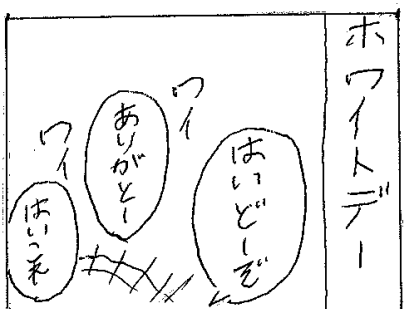 ホワイトデー
はいどーぞ
ワイ
ありがとー
ワイ
はいっ